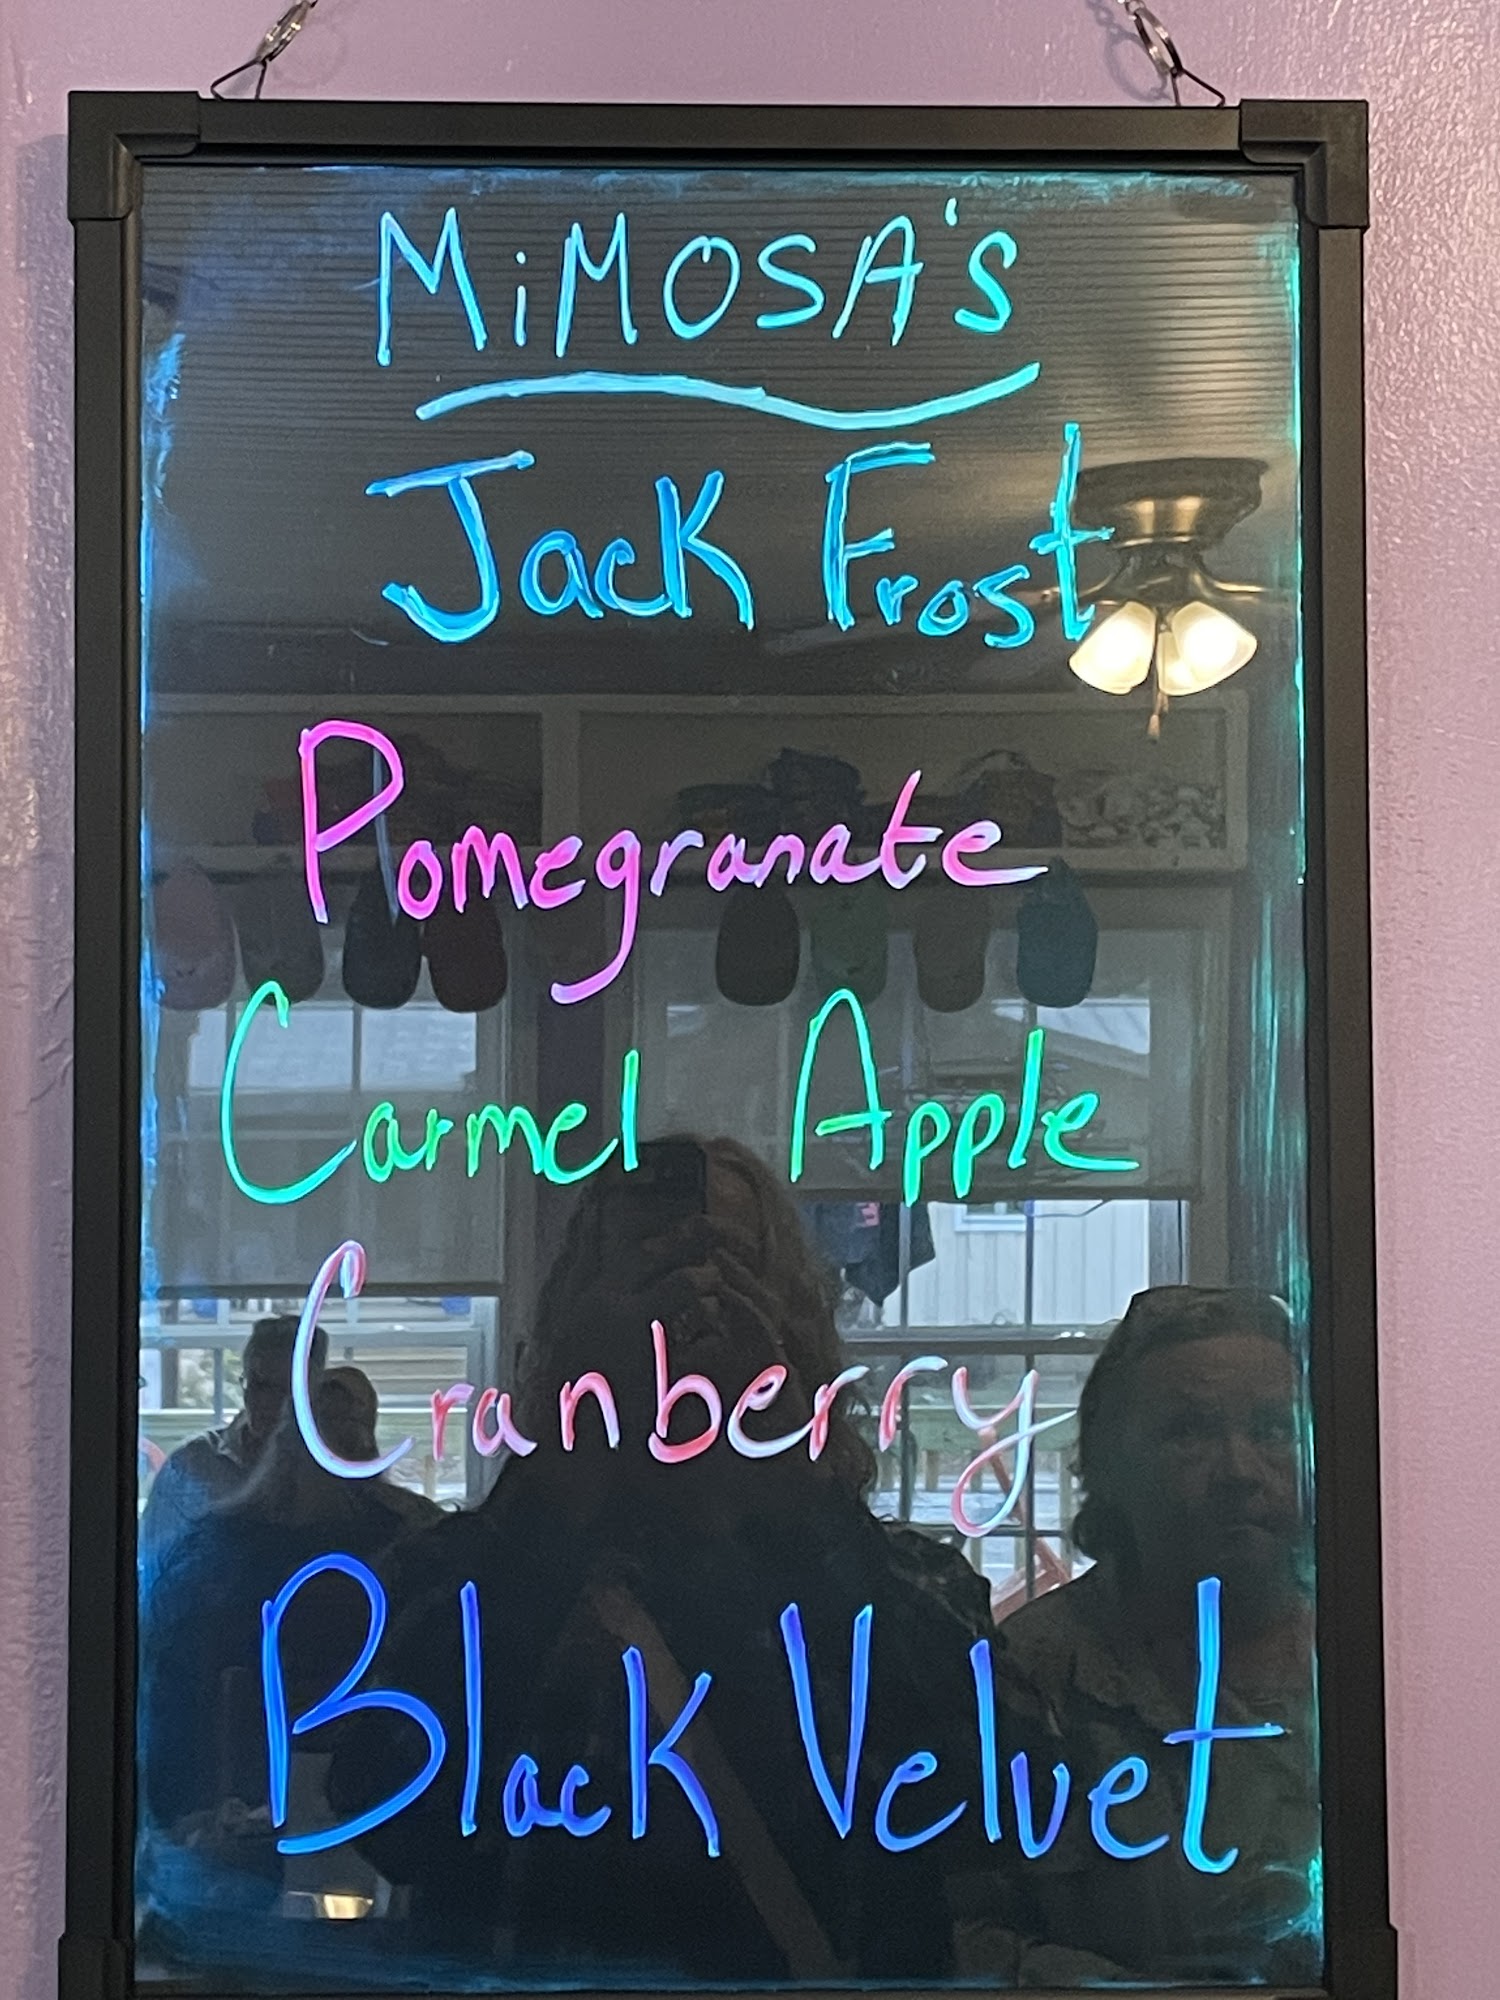 MiMOSA's
Jack Frost
Pomegranate
Carmel Apple
Cranberry
Black Velvet